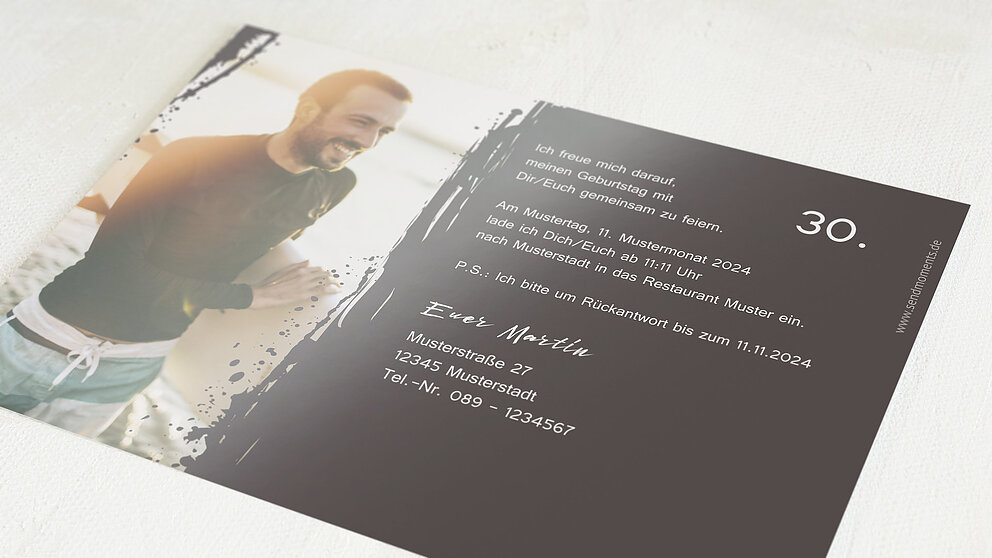 Ich freue mich darauf,
meinen Geburtstag mit
Dir/Euch gemeinsam zu feiern.
30.
Am Mustertag, 11. Mustermonat 2024
lade ich Dich/Euch ab 11:11 Uhr
nach Musterstadt in das Restaurant Muster ein.
P.S.: Ich bitte um Rückantwort bis zum 11.11.2024
Euer Martin
Musterstraße 27
12345 Musterstadt
Tel.-Nr. 089 - 1234567
www.sendmoments.de